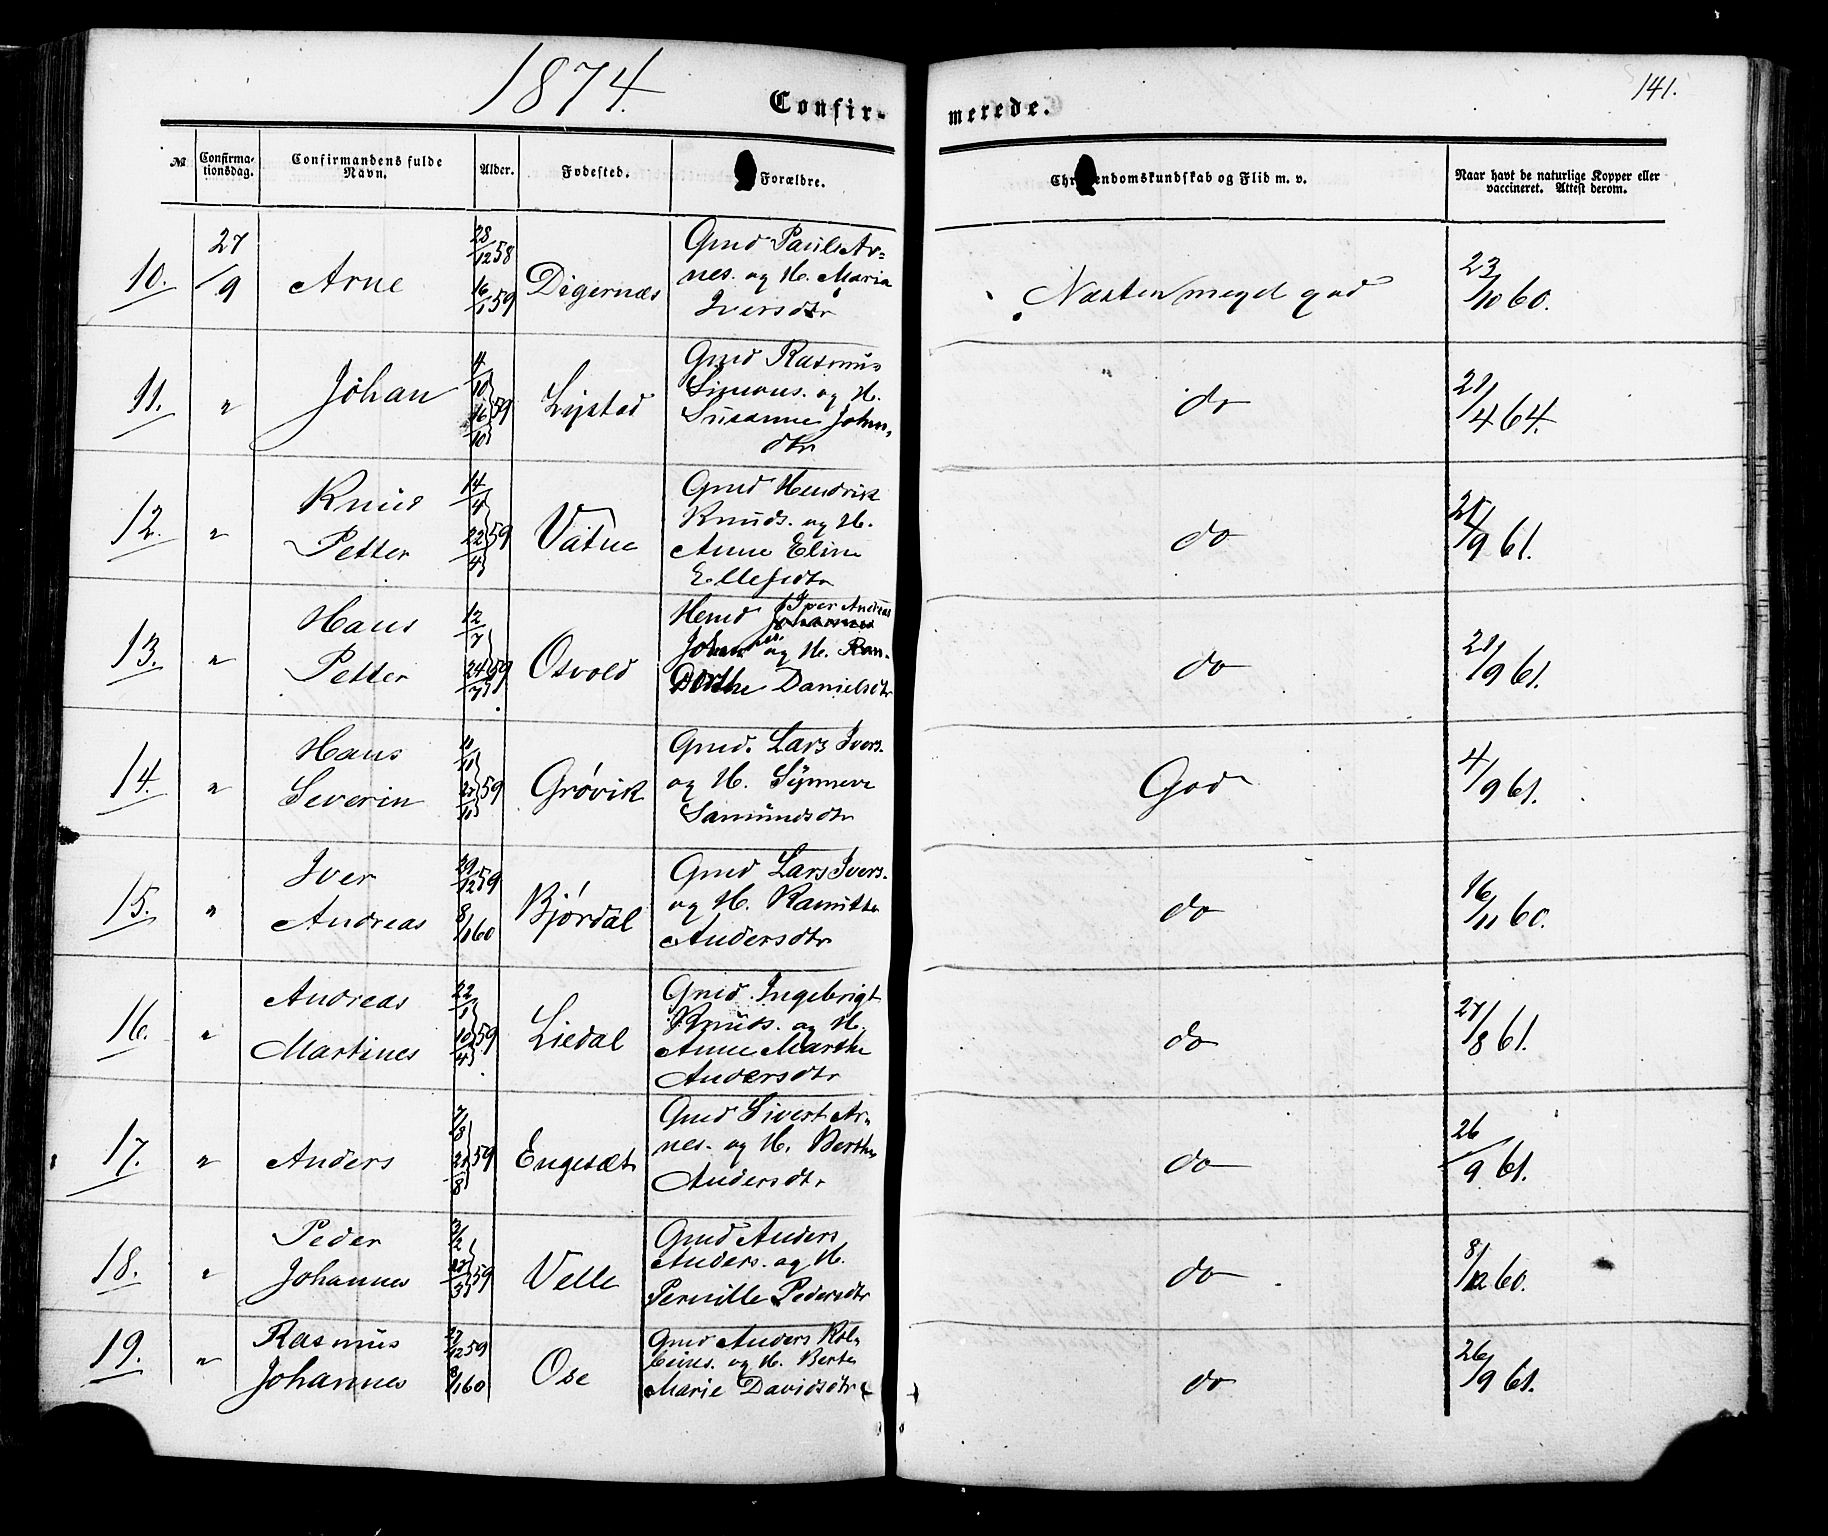 1874.
141.
Confir- merede.
№ Confirma-tionsdag. Confirmandens fulde Navn. Alder. Fødested. Forældre. Christendomskundskab og Flid m. v. Naar havt de naturlige Kopper eller vaccineret. Attest derom.
10. 27/9 Arne 28/12 58 16/1 59 Digernæs
Gmd Paul Ar=
nes. og H. Maria
Iversdtr
Næsten meget god 23/10 60.
11. " Johan 4/10 16/10 } 59 Lystad
Gmd Rasmus
Simons. og H.
Susanne Johns,
dtr
do 21/4 64.
12. " Knud Petter 14/4 22/4 } 59 Vatne
Gmd Hendrik
Knuds. og H.
Anne Eline
Ellefsdtr
do 21/9 61.
13. " Hans Petter 12/7 24/7 } 59 Osvold
Hmd Iver Andreas
Johans. og H. Ran-
Dorthe Danielsdtr
do 21/9 61.
14. " Hans Severin 11/10 23/10 } 59 Grøvik
Gmd. Lars Ivers.
og H. Synneve
Samundsdtr
God 4/9 61.
15. " Iver Andreas 29/12 59 8/1 60 Bjørdal
Gmd Lars Ivers.
og H.
Andersdtr
do 16/11 60.
16. " Andreas Martines 22/1 10/4 } 59 Liedal
Gmd Ingebrigt
Knuds. og H.
Anne Marthe
Andersdtr
do 27/8 61.
17. " Anders 7/8 21/8 } 59 Engesæt
Gmd Sivert Ar-
nes. og H. Berthe
Andersdtr
do 26/9 61.
18. " Peder Johannes 3/2 59 Velle
Gmd Anders
Anders. og H.
Pernille Pedersdtr
do 8/12 60.
19. " Rasmus Johannes 27/12 59 8/1 60 Ose
Gmd Anders Kol-
beins. og H. Berte
Marie Davidsdtr
do 26/9 61.